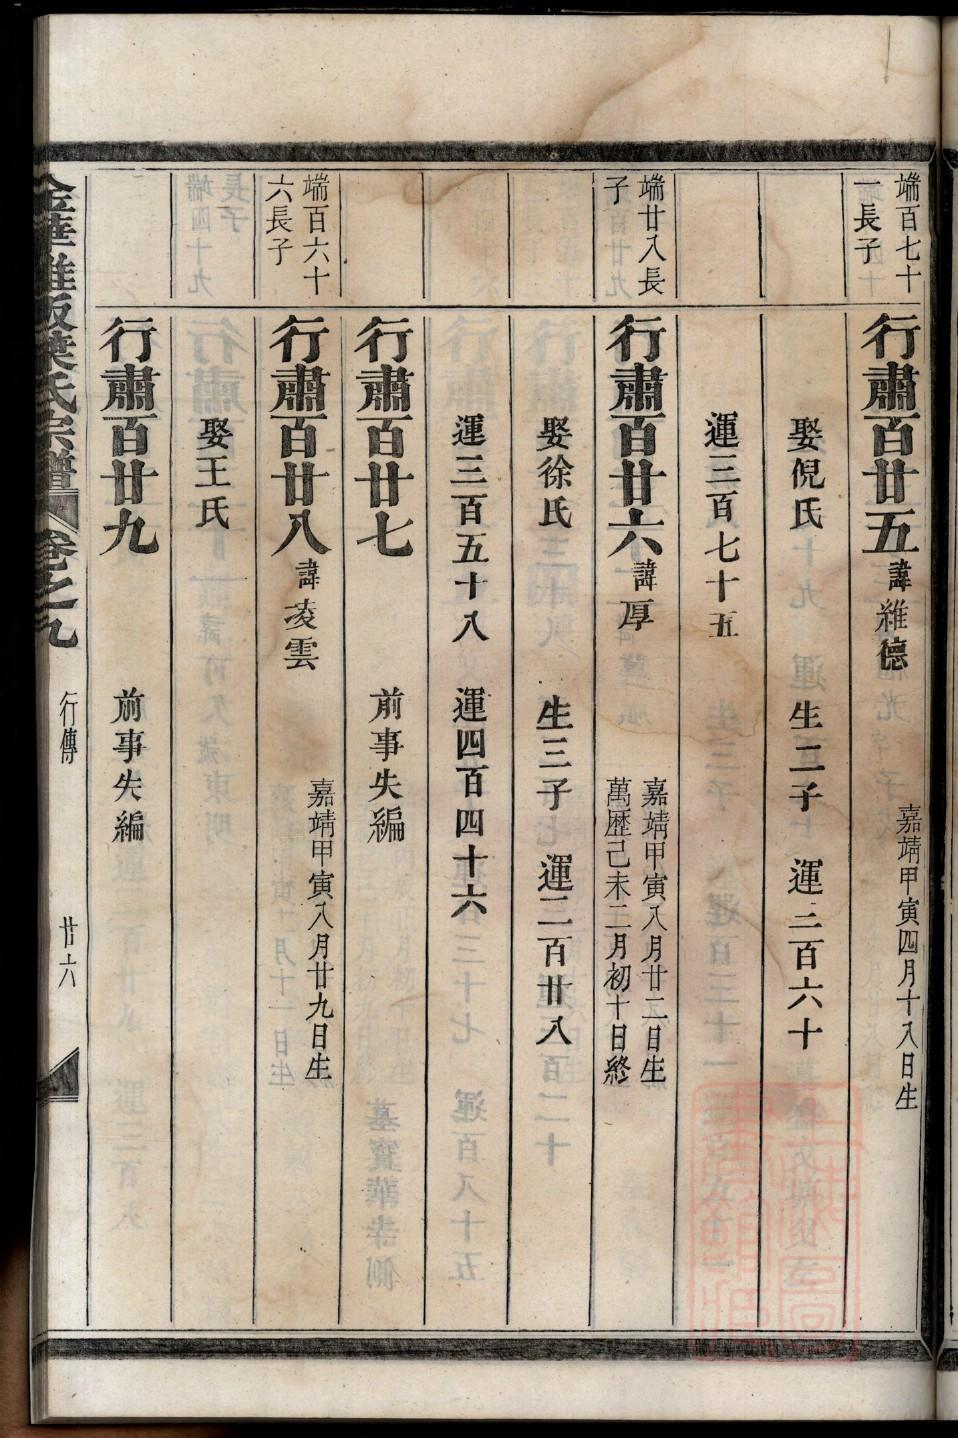 端百七十
一長子
行肅百廿五
諱維德
嘉靖甲寅四月十八日生
娶倪氏
生二子
運三百六十
運三百七十五
端廿八長
子
行肅百廿六
諱厚
嘉靖甲寅八月廿二日生
萬歷己未二月初十日終
娶徐氏
生三子
運二百廿八
運三百五十八
運四百四十六
行肅百廿七
前事失編
端百六十
六長子
行肅百廿八
諱凌雲
嘉靖甲寅八月廿九日生
娶王氏
行肅百廿九
前事失編
葉氏宗譜
卷之九
行傳
廿六